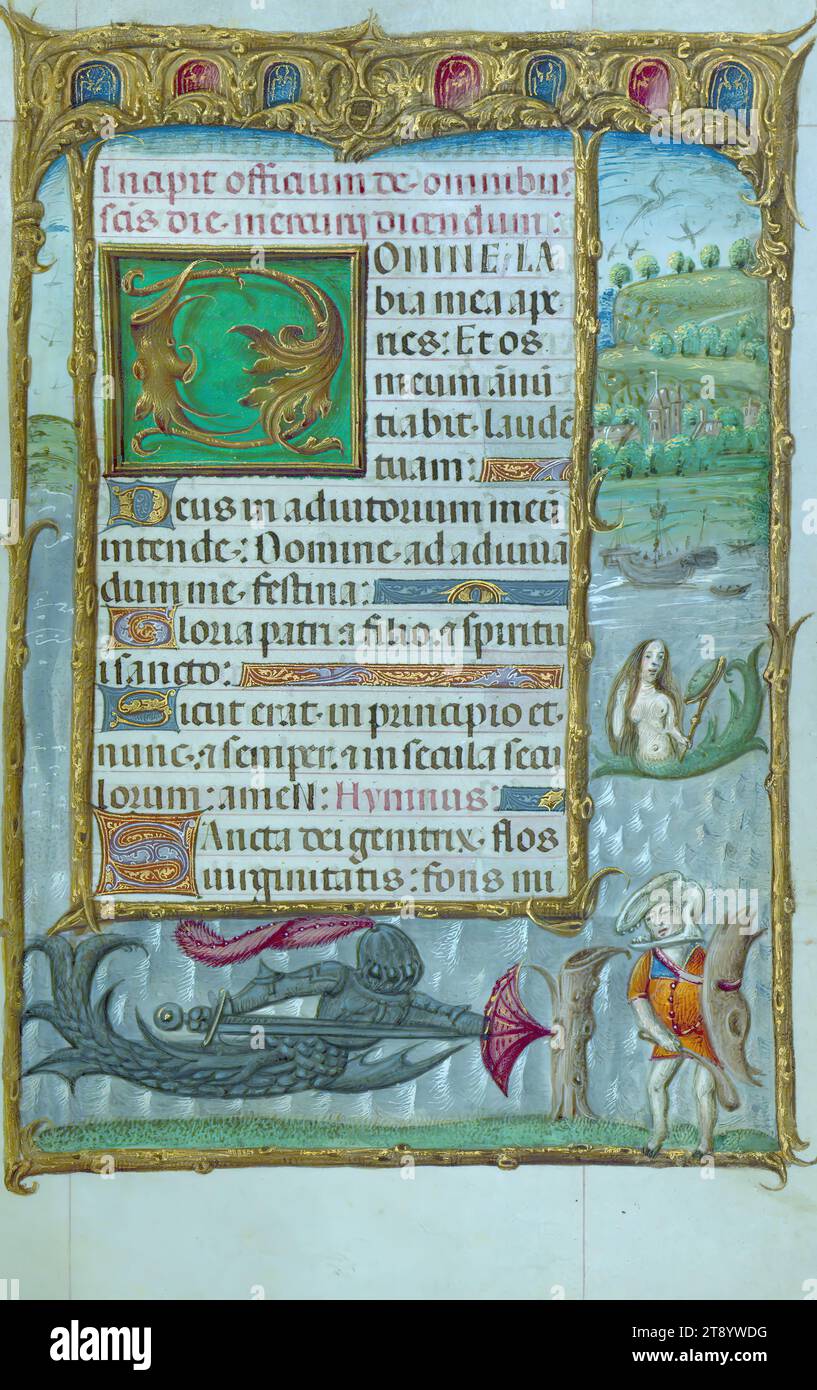 Incipit officium de omnibus
scis die mercurij dicendum:
DOMINE LA
bia mea ape
ries: Et os
meum ānū
tiabit laudē
tuam:
Deus in adiutorium meū
intende: Domine ad adiuuā
dum me festina:
Gloria patri ⁊ filio ⁊ spiritu
i sancto:
Sicut erat in principio et
nunc ⁊ semper ⁊ in secula secu
lorum: ameN: Hymnus:
SAncta dei genitrix flos
uirginitatis: fons mi
alamy
a
alamy
Image ID: 2T8YWDG
www.alamy.com